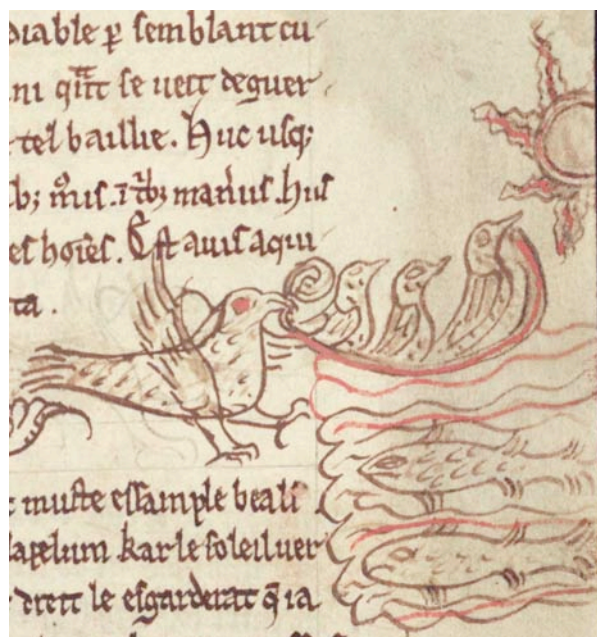 diable ꝑ semblant cu
ni qñt se uett deguer
tel baillie. Huc usq;
b; m̊is. i t̾b; man̾us. hus
es hoi̅es. Est auis aqui
ta.
muste essample beali
apelum kar le soleil uer
dreit le esgarderat q̅ ia